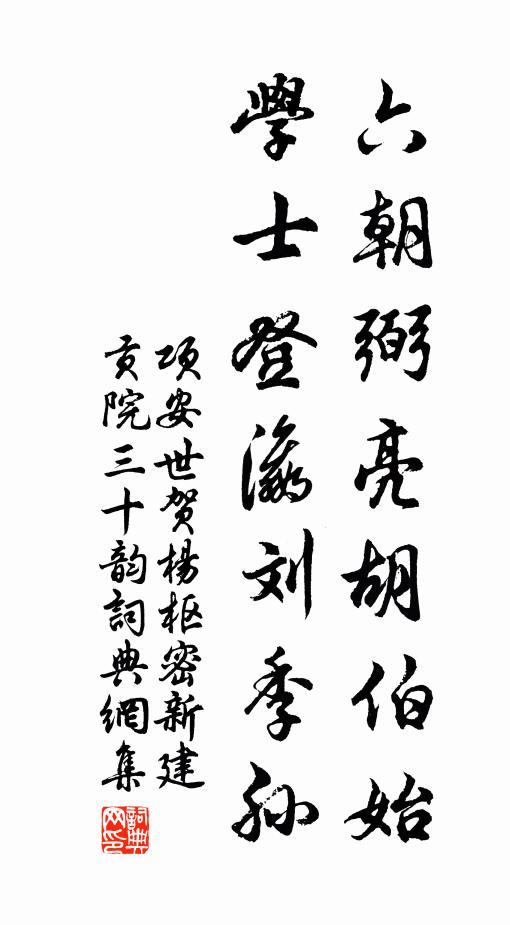 六朝弼亮胡伯始
學士登瀛刘季孙
项安世贺杨枢密新建
贡院三十韵詞典網集
詞典网印